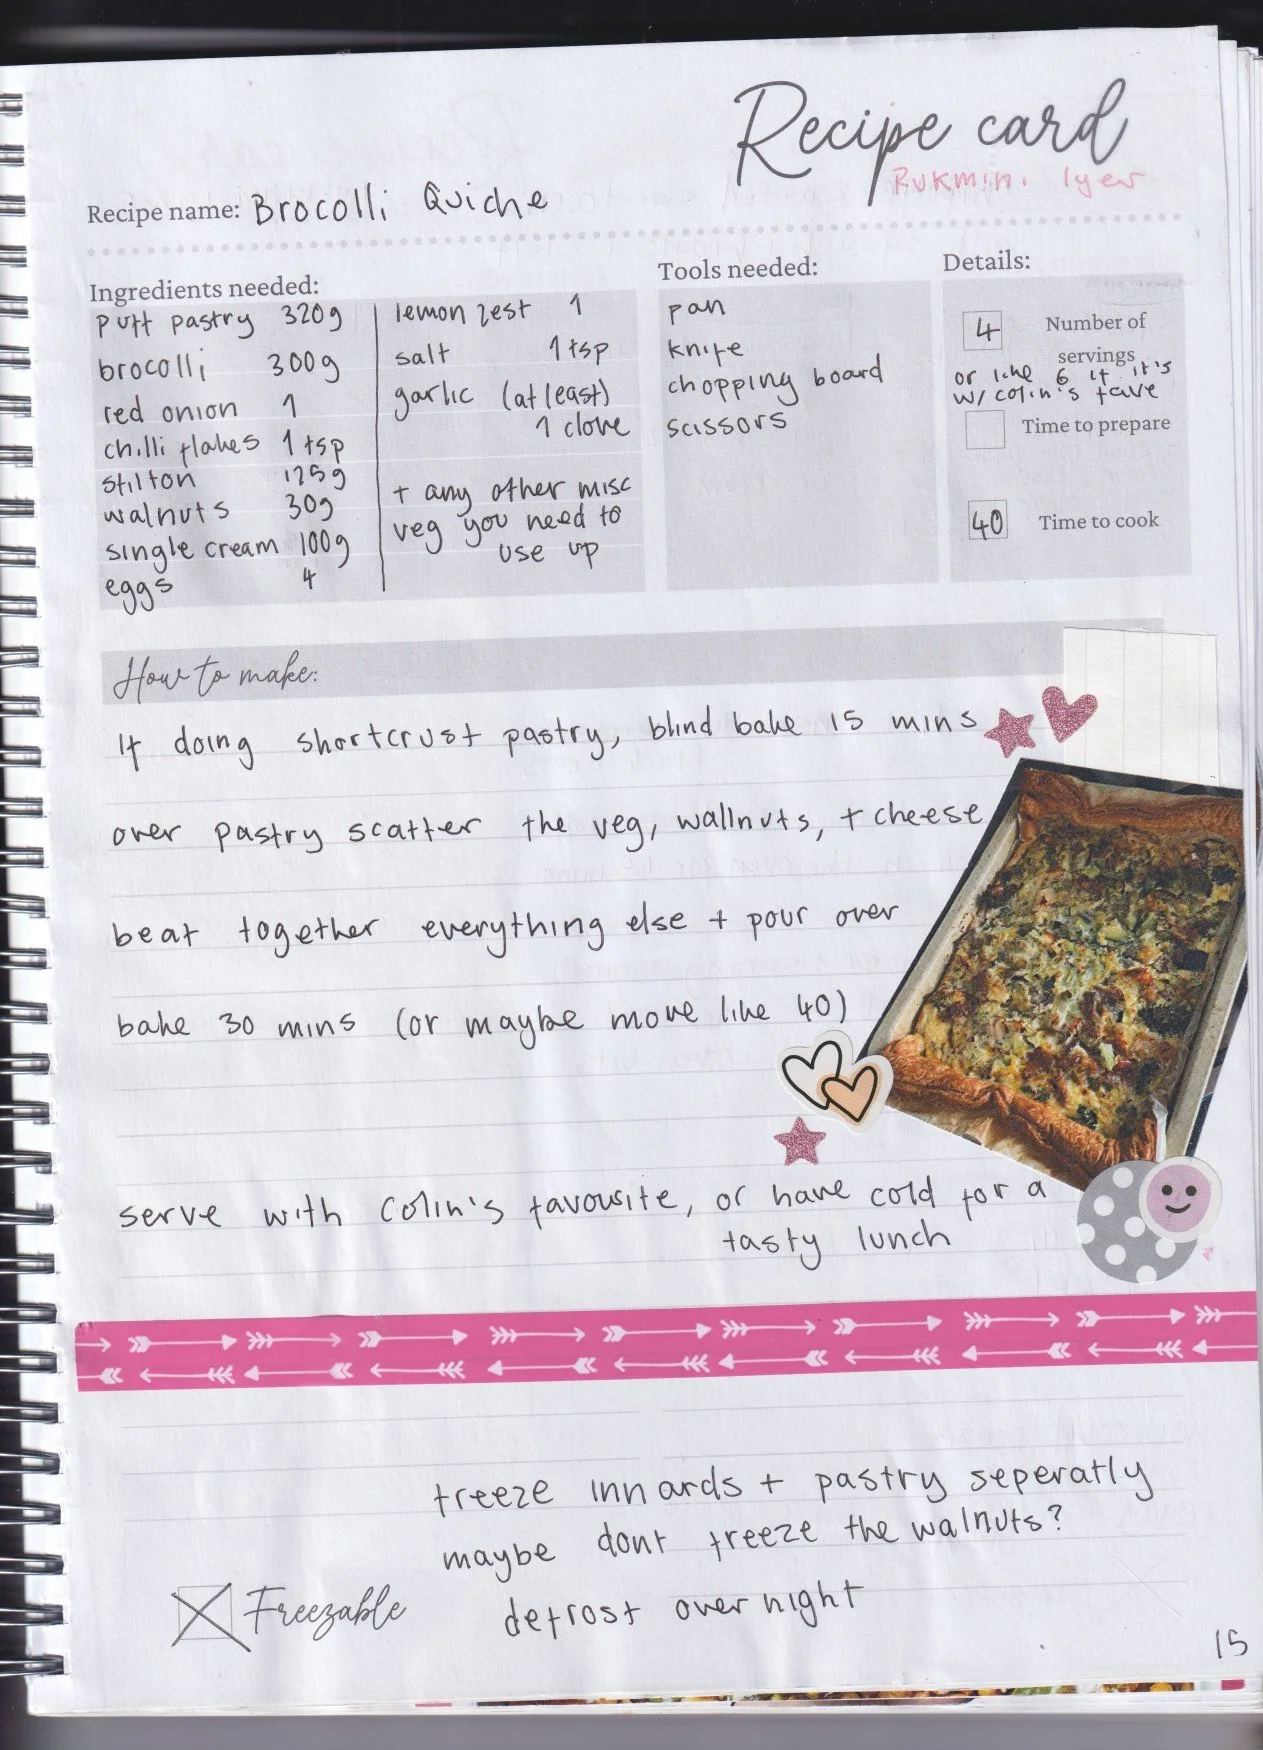 Recipe card
Rukmini Iyer
Recipe name: Brocolli Quiche
Ingredients needed:
puff pastry 320g
brocolli 300g
red onion 1
chilli flakes 1 tsp
stilton 125g
walnuts 30g
single cream 100g
eggs 4
lemon zest 1
salt 1 tsp
garlic (at least)
1 clove
+ any other misc
veg you need to
use up
Tools needed:
pan
knife
chopping board
scissors
Details:
4 Number of
servings
or like 6 if it's
w/ colin's fave
Time to prepare
40 Time to cook
How to make:
If doing shortcrust pastry, blind bake 15 mins
over pastry scatter the veg, wallnuts, + cheese
beat together everything else + pour over
bake 30 mins (or maybe more like 40)
serve with Colin's favourite, or have cold for a
tasty lunch
freeze innards + pastry seperatly
maybe dont freeze the walnuts?
defrost overnight
Freezable
15